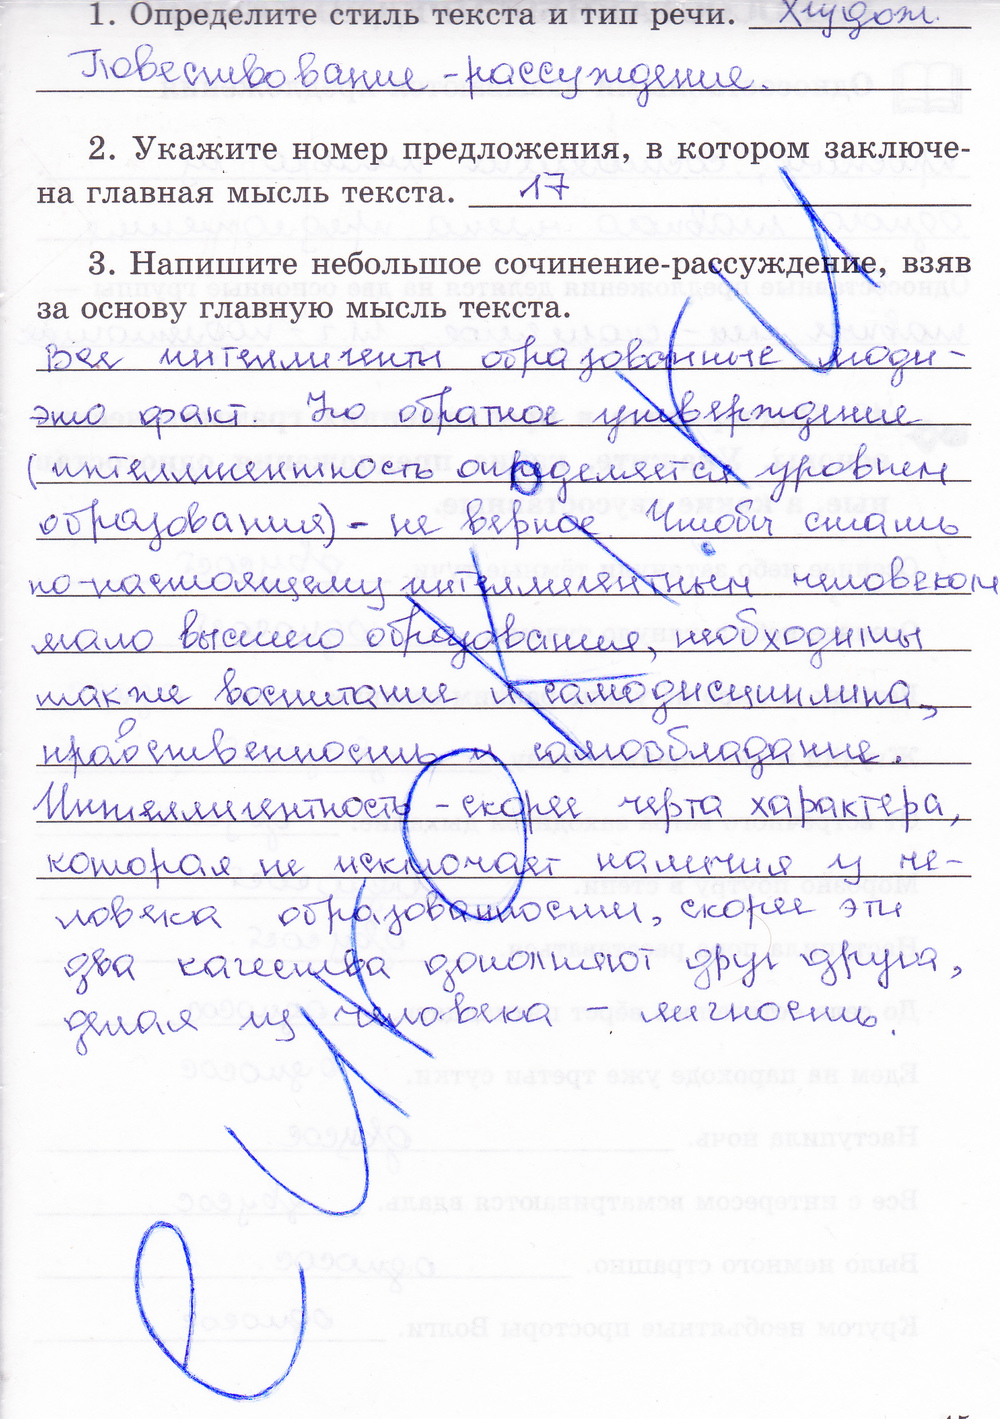 1. Определите стиль текста и тип речи. Худож.
Повествование -рассуждение.
2. Укажите номер предложения, в котором заключе-
на главная мысль текста. 17
3. Напишите небольшое сочинение-рассуждение, взяв
за основу главную мысль текста.
Все интеллигенты образованные люди -
это факт. Но обратное утверждение
(интеллигентность определяется уровнем
образования) - не верное. Чтобы стать
по-настоящему интеллигентным человеком
мало высшего образования, необходимы
также воспитание и самодисциплина,
нравственность и самообладание.
Интеллигентность - скорее черта характера,
которая не исключает наличия у че-
ловека образованности, скорее эти
два качества дополняют друг друга,
делая из человека - личность.